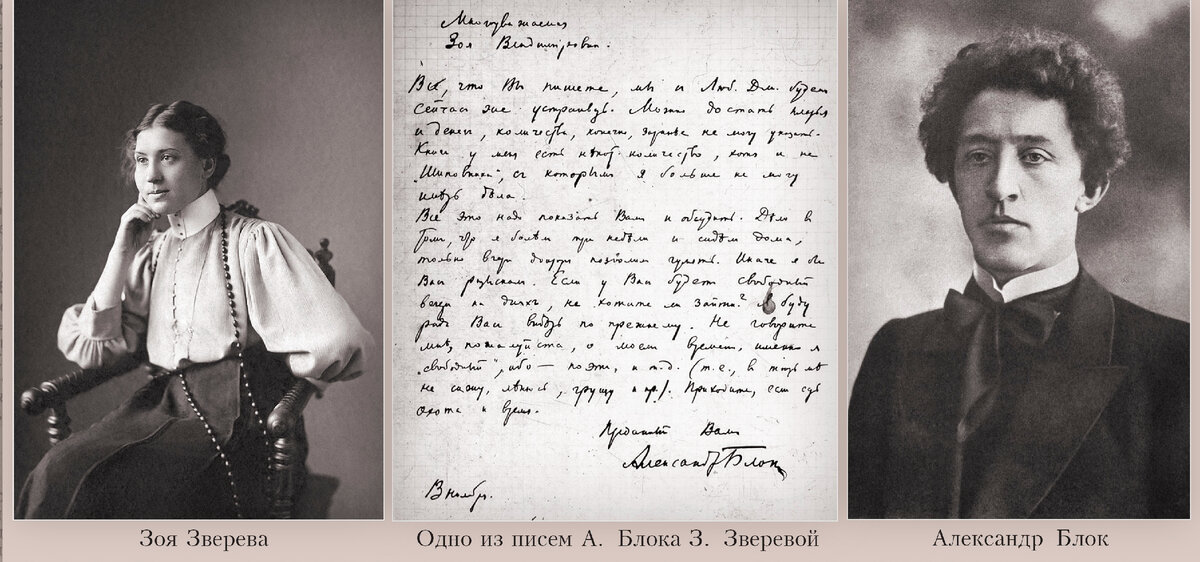 Многоуважаемая
Зоя Владимировна.
Всё, что Вы пишете, мы и Люб. Дм. будем
сейчас же устраивать. Можно достать платья
и деньги, количества, конечно, заранее не могу указать.
Книги у меня есть нѣкот. количество, хотя и не
„Шиповника", съ которымъ я больше не могу
имѣть дѣла.
Всё это надо показать Вам и обсудить. Дѣло в
том, что я болен три недѣли и сидѣл дома,
только вчера позволили гулять. Иначе я бы
Вас разыскал. Если у Вас будет свободный
вечер на днях, не хотите ли зайти? Я буду
рад Вас видѣть по прежнему. Не говорите
мнѣ, пожалуйста, о моем времени, именно я
„свободный", ибо — поэт, и т.д. (т.е., в
не сижу, лѣнюсь, грущу и пр.). Приходите, если
охота и время.
Преданный Вам
Александр Блок
8 ноября.
Зоя Зверева
Одно из писем А. Блока З. Зверевой
Александр Блок